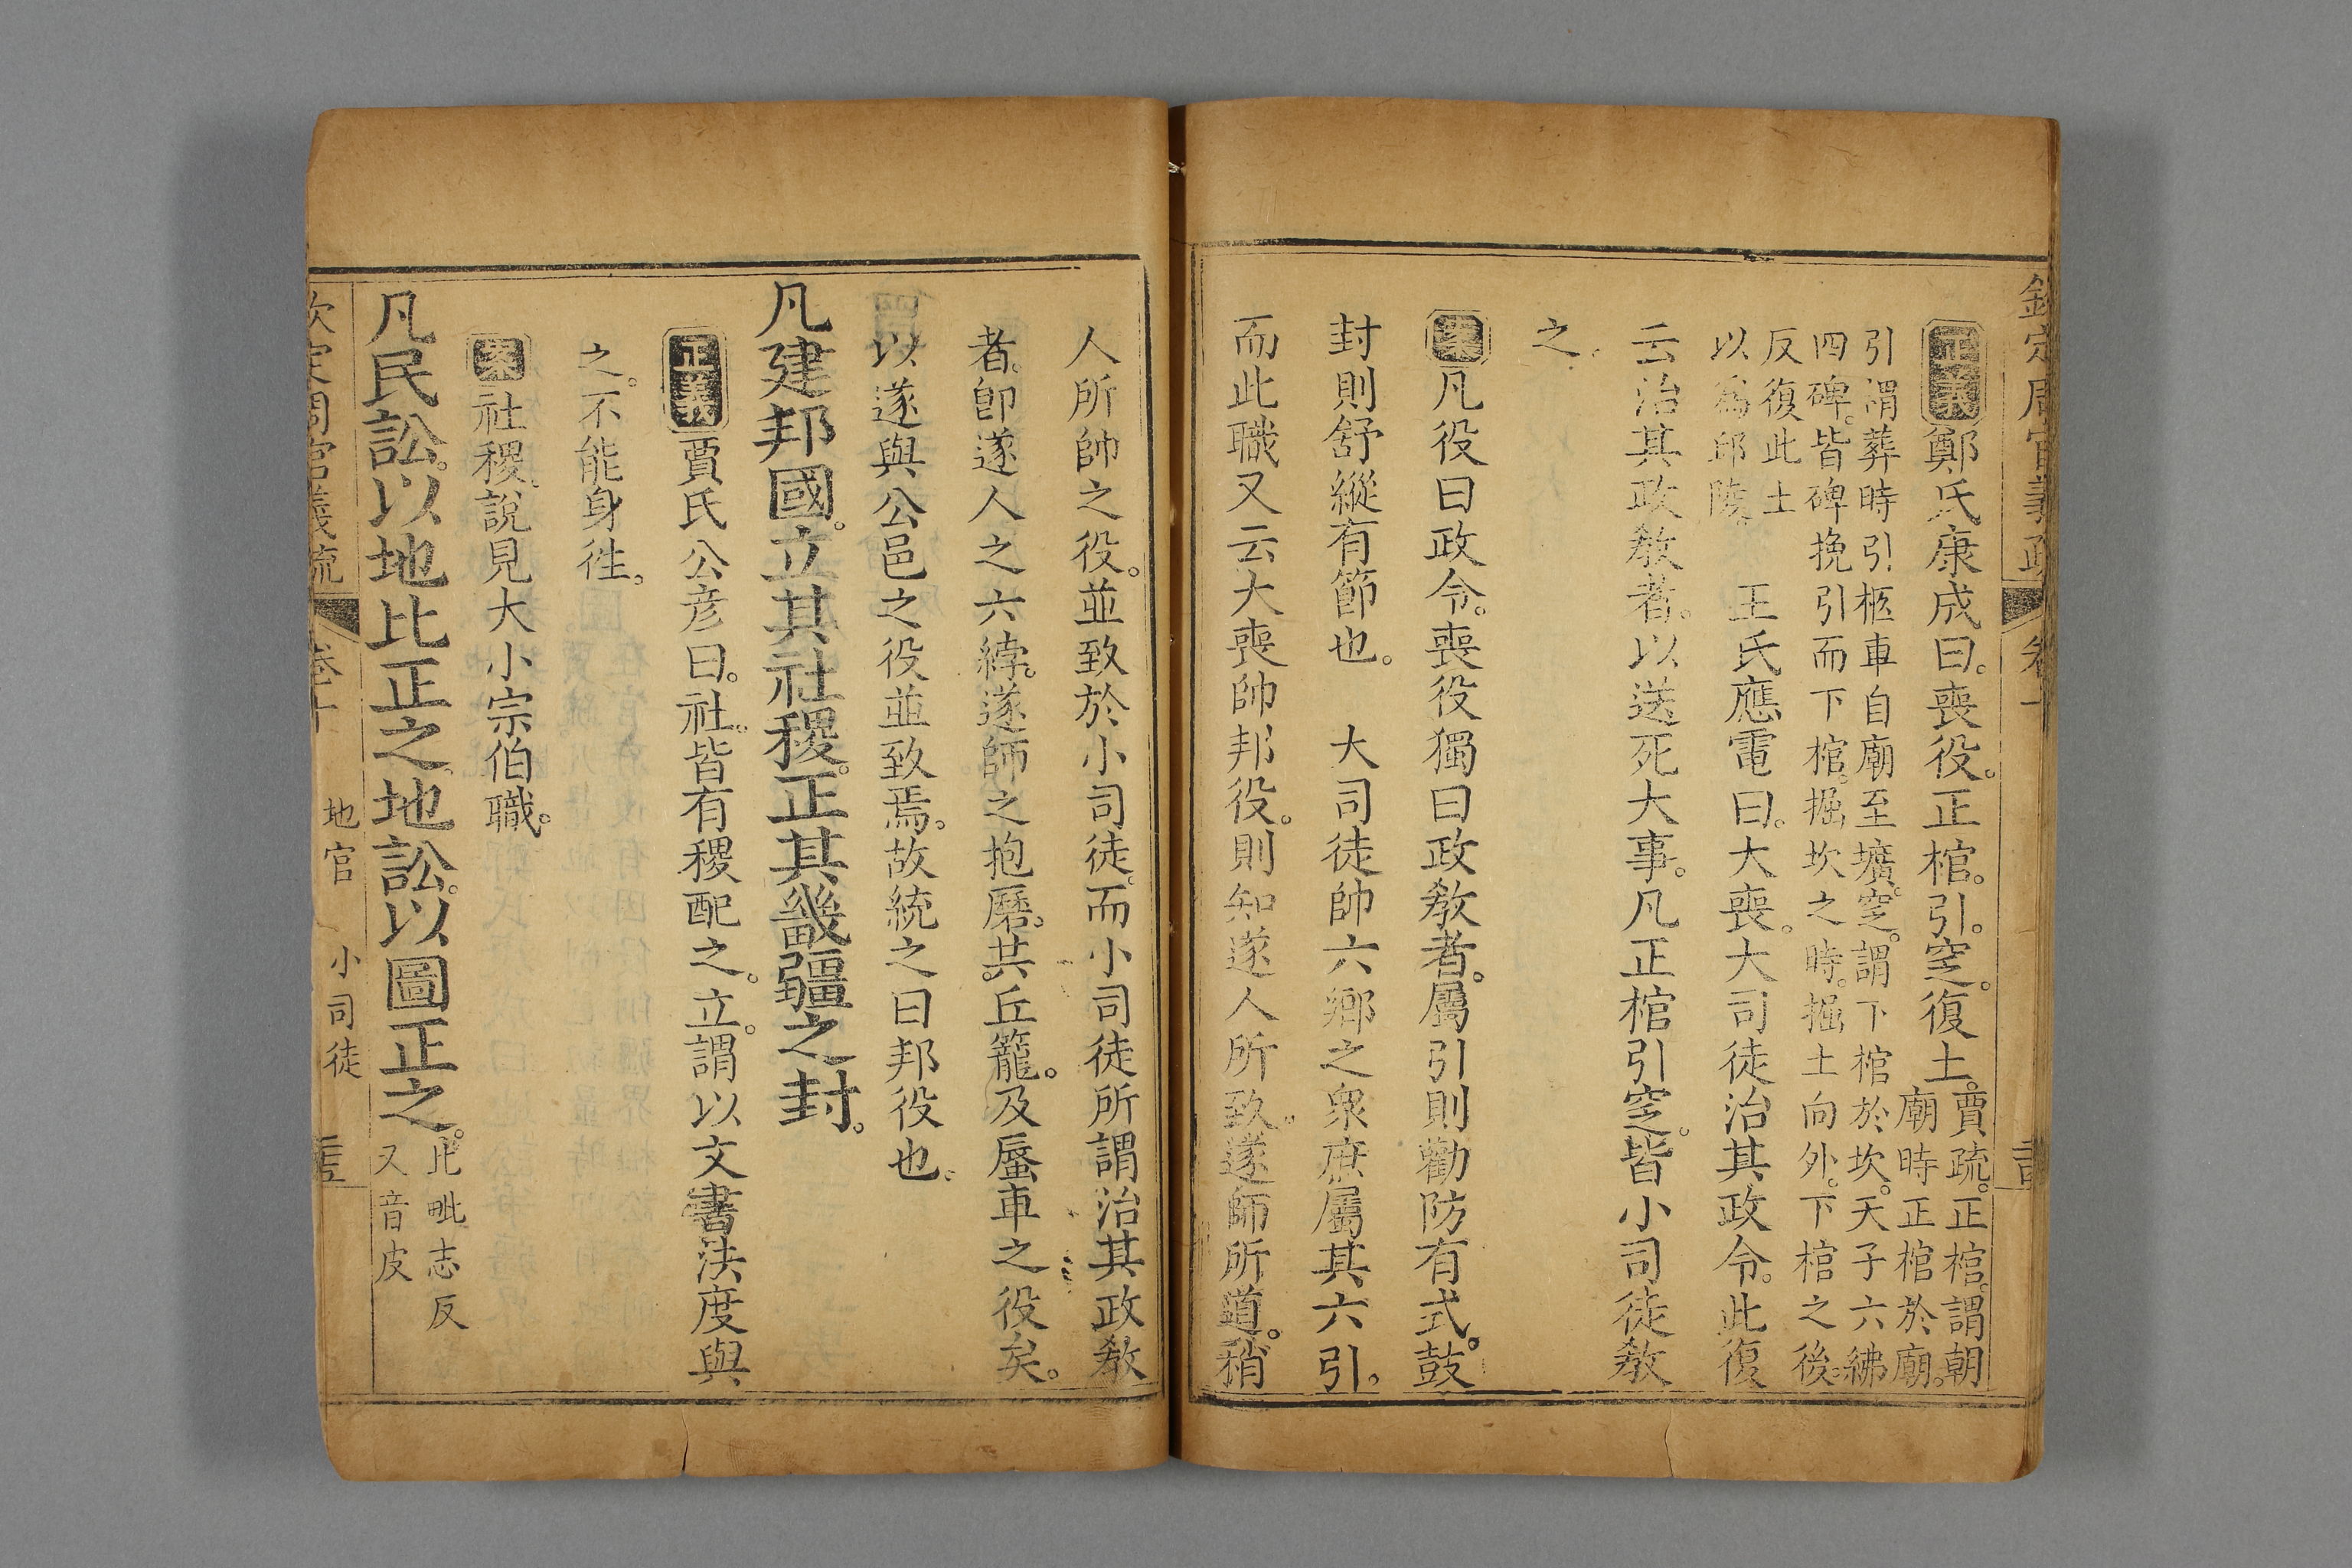 欽定周官義疏　卷十
正義鄭氏康成曰。喪役。正棺。引。窆。復土。賈疏。正棺。謂朝
廟時正棺於廟。
引謂葬時引柩車自廟至壙。窆。謂下棺於坎。天子六紼
四碑。皆碑挽引而下棺。掘坎之時。掘土向外。下棺之後。
反復此土
以爲邱陵。　王氏應電曰。大喪。大司徒治其政令。此復
云治其政敎者。以送死大事。凡正棺引窆。皆小司徒敎
之。
案凡役曰政令。喪役獨曰政敎者。屬引則勸防有式。鼓
封則舒縱有節也。　大司徒帥六鄉之衆庶屬其六引。
而此職又云大喪帥邦役。則知遂人所致。遂師所道。稍
人所帥之役。並致於小司徒。而小司徒所謂治其政敎
者。卽遂人之六綍。遂師之抱磿。共丘籠。及蜃車之役矣。
以遂與公邑之役並致焉。故統之曰邦役也。
凡建邦國。立其社稷。正其畿疆之封。
正義賈氏公彥曰。社。皆有稷配之。立。謂以文書法度與
之。不能身徃。
案社稷。說見大小宗伯職。
凡民訟。以地比正之。地訟。以圖正之。比毗志反
又音皮
欽定周官義疏　卷十　地官　小司徒